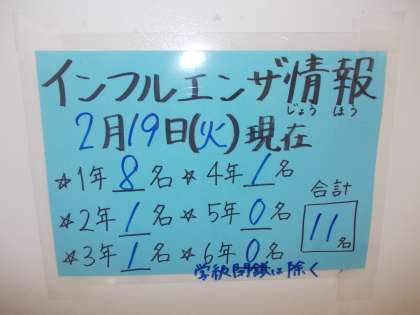 インフルエンザ情報
じょう ほう
2月19日(火)現在
☆1年8名 ☆4年1名
☆2年1名 ☆5年0名
☆3年1名 ☆6年0名
合計
11名
学級閉鎖は除く